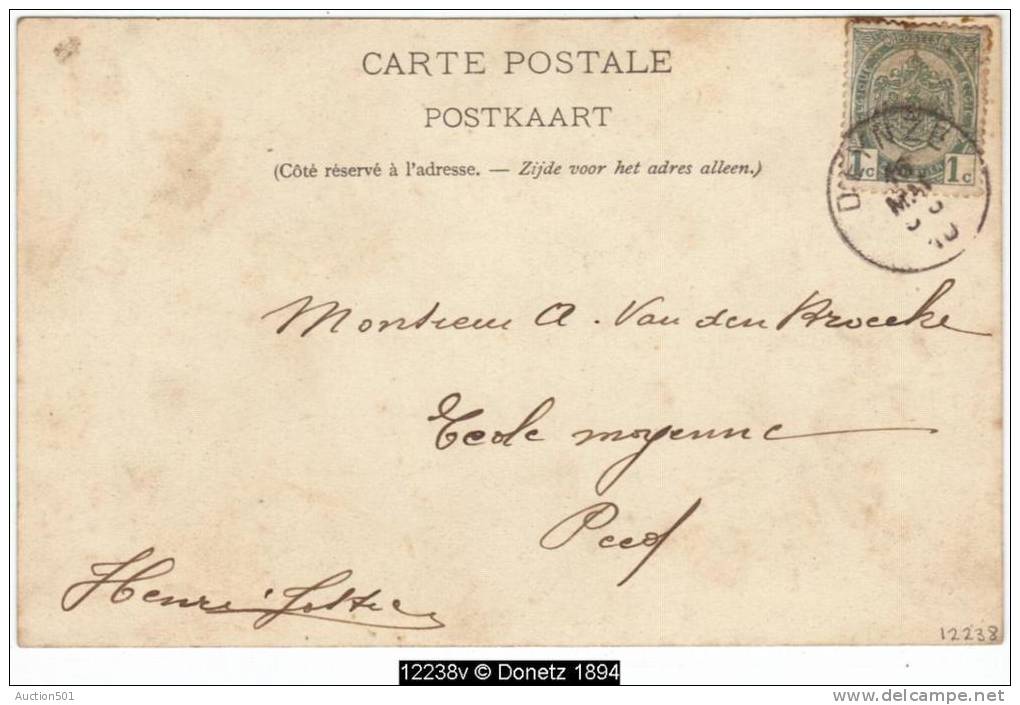 CARTE POSTALE
POSTKAART
(Côté réservé à l'adresse. — Zijde voor het adres alleen.)
1 c 1 c
MAI
Monsieur A. Van den Broecke
Ecole moyenne
Henri
12238
12238v © Donetz 1894
Auction501
delcampe.net